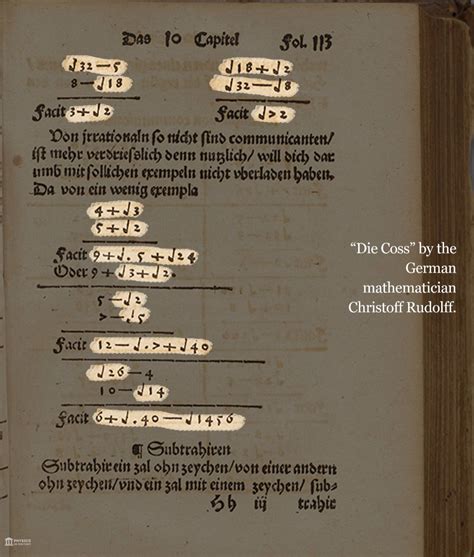 Das 10 Capitel Fol. 113
√32—5 √18+√2
8—√18 √32—√8
Facit 3+√2 Facit √72
Von jrrationaln so nicht sind communicanten/
ist mehr verdriesslich denn nutzlich/ will dich dar
umb mit sollichen exempeln nicht vberladen haben.
Da von ein wenig exempla
4+√3
5+√2
Facit 9+√.5+√24
Oder 9+√3+√2.
5—√2
7—√5
Facit 12—√.7+√40
√26—4
10—√14
Facit 6+√.40—√1456
¶ Subtrahiren
Subtrahir ein zal ohn zeychen/von einer andern
ohn zeychen/vnd ein zal mit einem zeychen/ sub-
Hh iij trahir
“Die Coss” by the
German
mathematician
Christoff Rudolff.